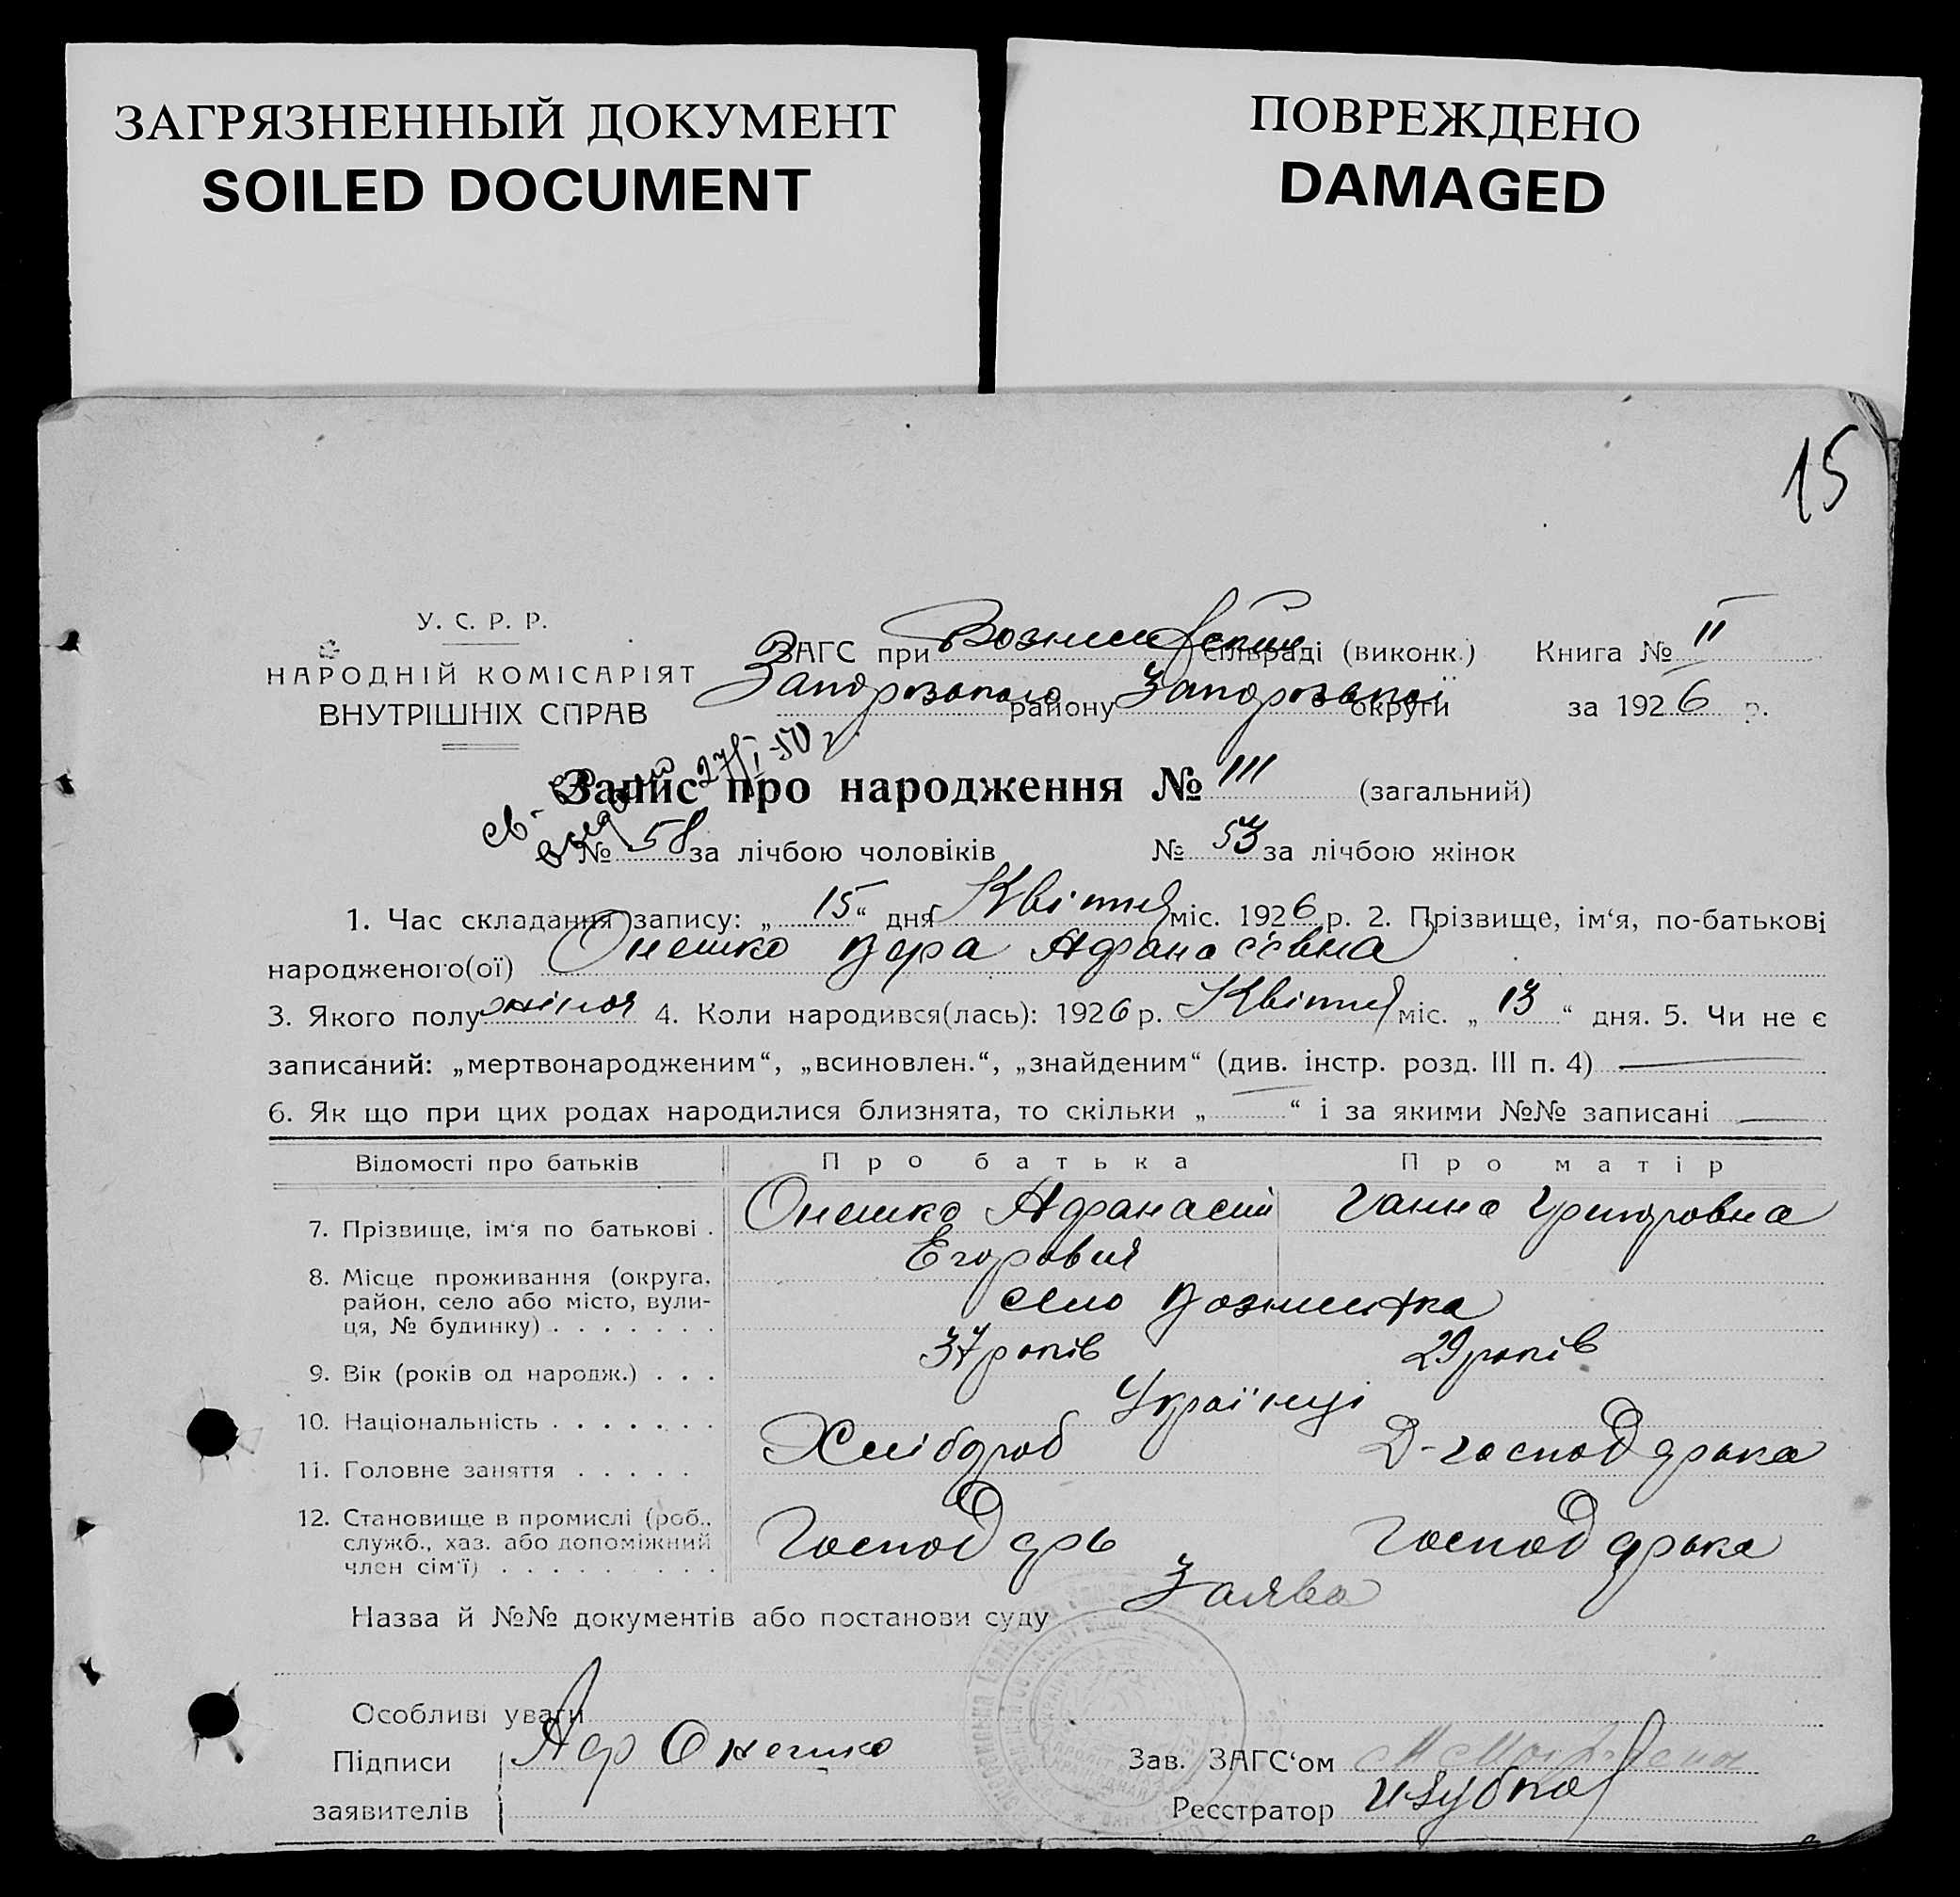 ЗАГРЯЗНЕННЫЙ ДОКУМЕНТ
SOILED DOCUMENT
ПОВРЕЖДЕНО
DAMAGED
15
У. С. Р. Р.
НАРОДНІЙ КОМІСАРІЯТ
ВНУТРІШНІХ СПРАВ
ЗАГС при сільраді (виконк.) Книга № II
Запорозького району Запорозької округи за 1926 р.
27/I-50 г.
Запис про народження № 111 (загальний)
№ 58 за лічбою чоловіків № 53 за лічбою жінок
1. Час складання запису: „15“ дня Квітня міс. 1926 р. 2. Прізвище, ім‘я, по-батькові
народженого(ої) Онешко Вера Афанасієвна
3. Якого полу жіноч 4. Коли народився(лась): 1926 р. Квітня міс. „13“ дня. 5. Чи не є
записаний: „мертвонародженим“, „всиновлен.“, „знайденим“ (див. інстр. розд. III п. 4) —
6. Як що при цих родах народилися близнята, то скільки „—“ і за якими №№ записані —
Відомості про батьків Про батька Про матір
7. Прізвище, ім‘я по батькові . Онешко Афанасий Егорович Ганна Григоровна
8. Місце проживання (округа, район, село або місто, вулиця, № будинку) . . . . . . . село Вознесенка
9. Вік (років од народж.) . . . 37 років 29 років
10. Національність . . . . . . . Українці
11. Головне заняття . . . . . Хлібороб Д-господарка
12. Становище в промислі (роб., служб., хаз. або допоміжний член сім‘ї) . . . . . . . . . Господарь господарька
Назва й №№ документів або постанови суду Заява
Особливі уваги
Підписи Аф Онешко Зав. ЗАГС‘ом
заявителів Реєстратор